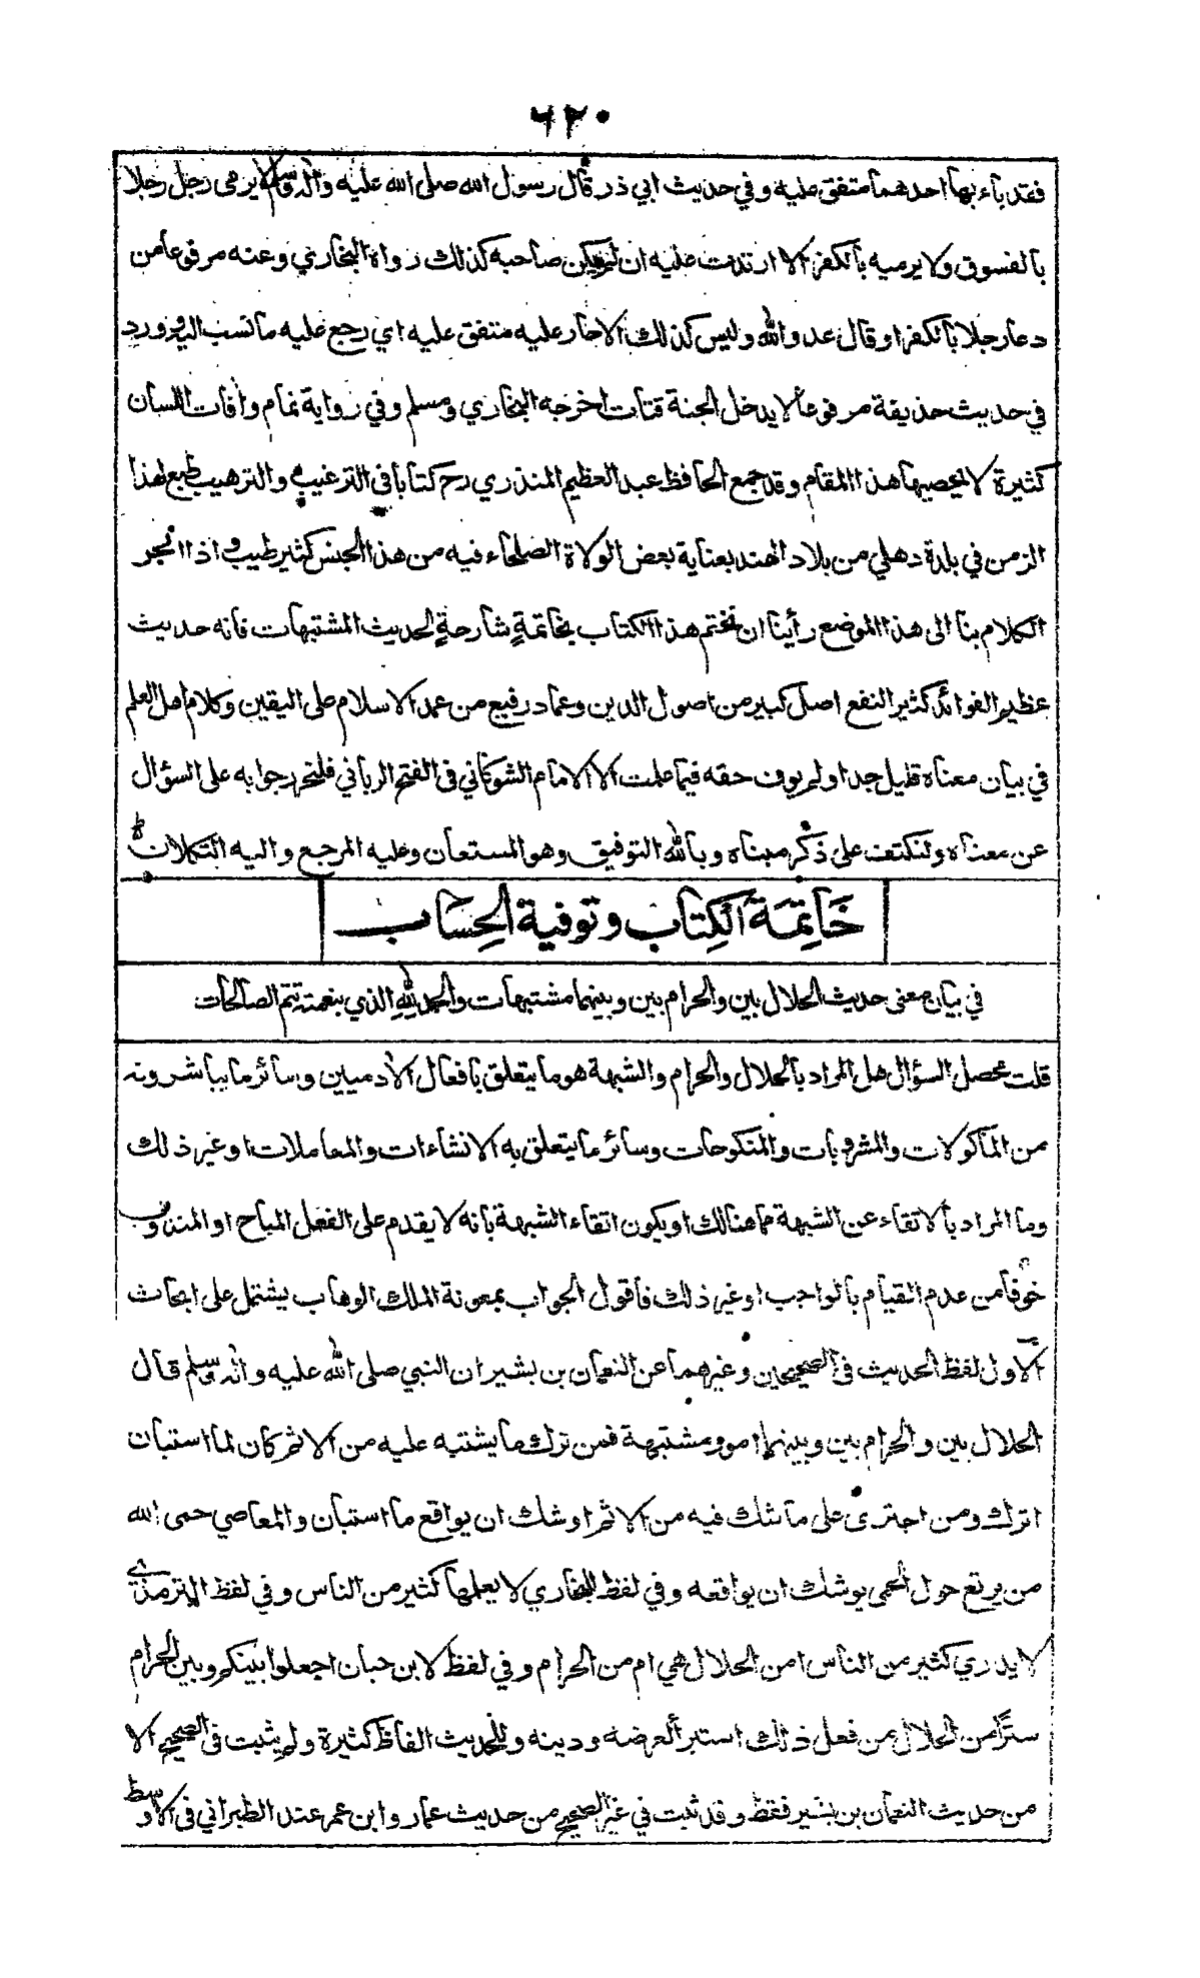 ٦٢٠
فقد باء بها احدهما متفق عليه وفي حديث ابي ذر قال رسول الله صلى الله عليه واله وسلم لا يرمى رجل رجلا
بالفسوق ولا يرميه بالكفر الا ارتدت عليه ان لم يكن صاحبه كذلك رواه البخاري وعنه مرفوعا من
دعا رجلا بالكفر او قال عدو الله وليس كذلك الا حار عليه متفق عليه اي رجع عليه ما نسب اليه وورد
في حديث حذيفة مرفوعا لا يدخل الجنة قتات اخرجه البخاري ومسلم وفي رواية نمام وافات اللسان
كثيرة لا يحصيها هذا المقام وقد جمع الحافظ عبد العظيم المنذري رح كتابا في الترغيب والترهيب طبع لهذا
الزمن في بلدة دهلي من بلاد الهند بعناية بعض الولاة الصلحاء فيه من هذا الجنس كثير طيب واذا انجر
الكلام بنا الى هذا الموضع رأينا ان نختم هذا الكتاب بخاتمةٍ شارحةٍ لحديث المشتبهات فانه حديث
عظيم الفوائد كثير النفع اصل كبير من اصول الدين وعماد رفيع من عمد الاسلام على اليقين وكلام اهل العلم
في بيان معناه قليل جدا ولم يوف حقه فيما علمت الا الامام الشوكاني في الفتح الرباني فلنحرر جوابه على السؤال
عن معناه ولنكتف على ذكر مبناه وبالله التوفيق وهو المستعان وعليه المرجع واليه التكلان
خَاتِمَة الْكِتَاب وتوفية الحِسَاب
في بيان معنى حديث الحلال بين والحرام بين وبينهما مشتبهات والحمد لِلّٰهِ الذي بنعمته تتم الصالحات
قلت محصل السؤال هل المراد بالحلال والحرام والشبهة هو ما يتعلق بافعال الآدميين وسائر ما يباشرونه
من المأكولات والمشروبات والمنكوحات وسائر ما يتعلق به الانشاءات والمعاملات او غير ذلك
وما المراد بالاتقاء عن الشبهة مما هنالك او يكون اتقاء الشبهة بانه لا يقدم على الفعل المباح او المندوب
خوفا من عدم القيام بالواجب او غير ذلك فاقول الجواب بمعونة الملك الوهاب يشتمل على ابحاث
الاول لفظ الحديث في الصحيحين وغيرهما عن النعمان بن بشير ان النبي صلى الله عليه واله وسلم قال
الحلال بين والحرام بين وبينهما امور مشتبهة فمن ترك ما يشتبه عليه من الاثم كان لما استبان
اترك ومن اجترى على ما شك فيه من الاثم اوشك ان يواقع ما استبان والمعاصي حمى الله
من يرتع حول الحمى يوشك ان يواقعه وفي لفظ للبخاري لا يعلمها كثير من الناس وفي لفظ للترمذي
لا يدري كثير من الناس امن الحلال هي ام من الحرام وفي لفظ لابن حبان اجعلوا بينكم وبين الحرام
سترًا من الحلال من فعل ذلك استبرأ لعرضه ودينه وللحديث الفاظ كثيرة ولم يثبت في الصحيح الا
من حديث النعمان بن بشير فقط وقد ثبت في غير الصحيح من حديث عمار وابن عمر عند الطبراني في الاوسط